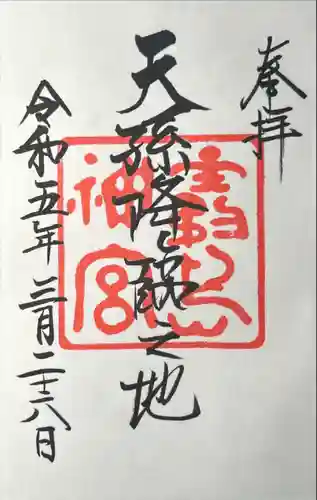 奉拝
天孫降臨之地
霧島
神宮
令和五年三月二十八日